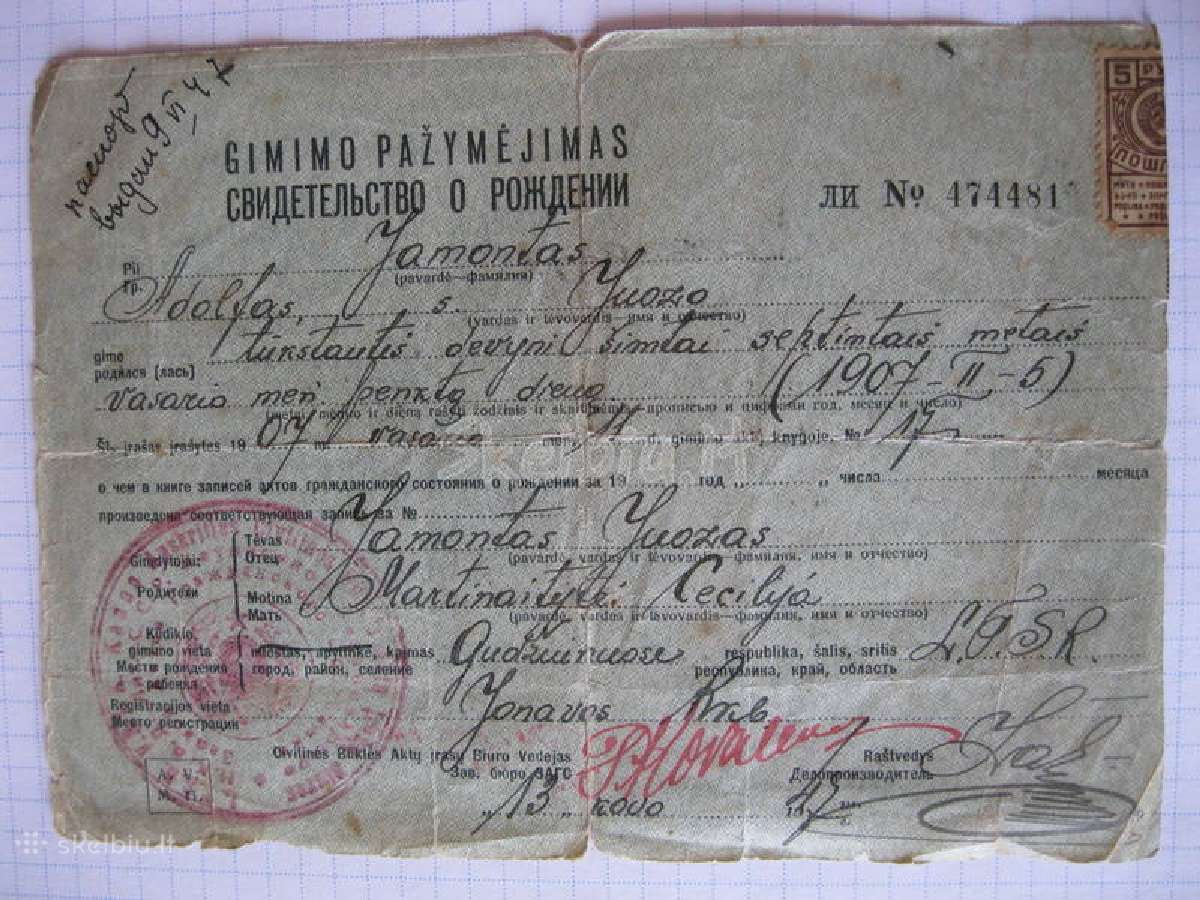 паспорт
выдан 9 VI 47
GIMIMO PAŽYMĖJIMAS
СВИДЕТЕЛЬСТВО О РОЖДЕНИИ
ЛИ № 474481
5 РУ
ПОШЛ
Pil.
Гр.
Jamontas
(pavardė—фамилия)
Adolfas, s. Juozo
(vardas ir tėvovardis—имя и отчество)
gimė
родился (лась)
tūkstantis devyni šimtai septintais metais
vasario mėn. penktą dieną (1907-II-5)
(metai, mėnuo ir diena rašyti žodžiais ir skaitmenimis—прописью и цифрами год, месяц и число)
Šis įrašas įrašytas 1907 m. vasario mėn. d. gimimo aktų knygoje, № 17
о чем в книге записей актов гражданского состояния о рождении за 19 год „ “ числа месяца
произведена соответствующая запись за №
Gimdytojai:
Родители
Tėvas
Отец
Jamontas Juozas
(pavardė, vardas ir tėvovardis—фамилия, имя и отчество)
Motina
Мать
Martinaitytė Cecilija
(pavardė, vardas ir tėvovardis—фамилия, имя и отчество)
Kūdikio
gimimo vieta
Место рождения
ребенка
miestas, apylinkė, kaimas
город, район, селение
respublika, šalis, sritis
республика, край, область
L.T.S.R.
Registracijos vieta
Место регистрации
Jonavos
Civilinės Būklės Aktų įrašų Biuro Vedėjas
Зав. бюро ЗАГС
Raštvedys
Делопроизводитель
„13“ kovo 47 m.
г.
A. V.
М. П.
skelbiu.lt
skelbiu.lt